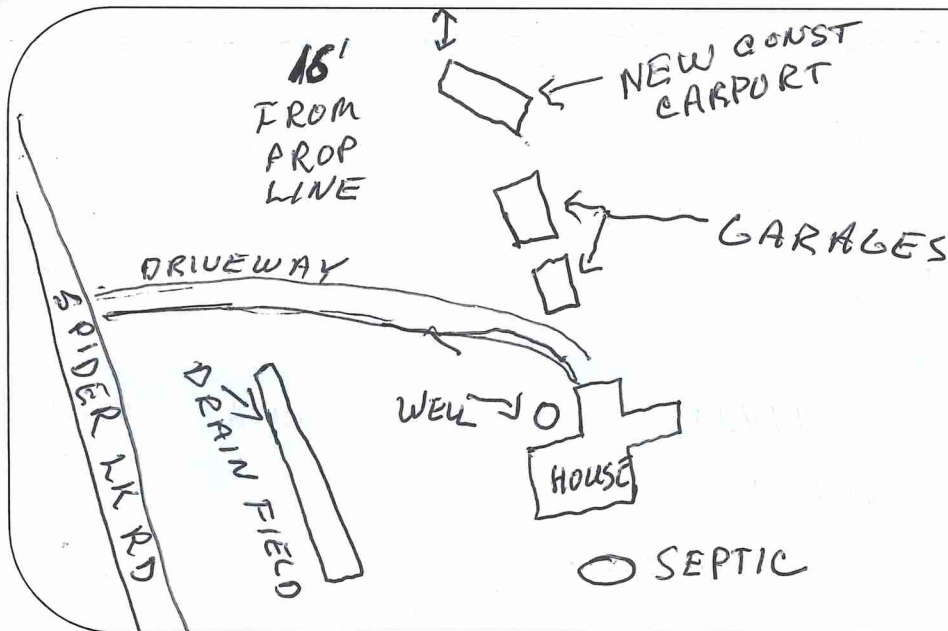 16'
FROM
PROP
LINE
NEW CONST
CARPORT
GARAGES
DRIVEWAY
SPIDER LK RD
DRAIN FIELD
WELL
HOUSE
SEPTIC